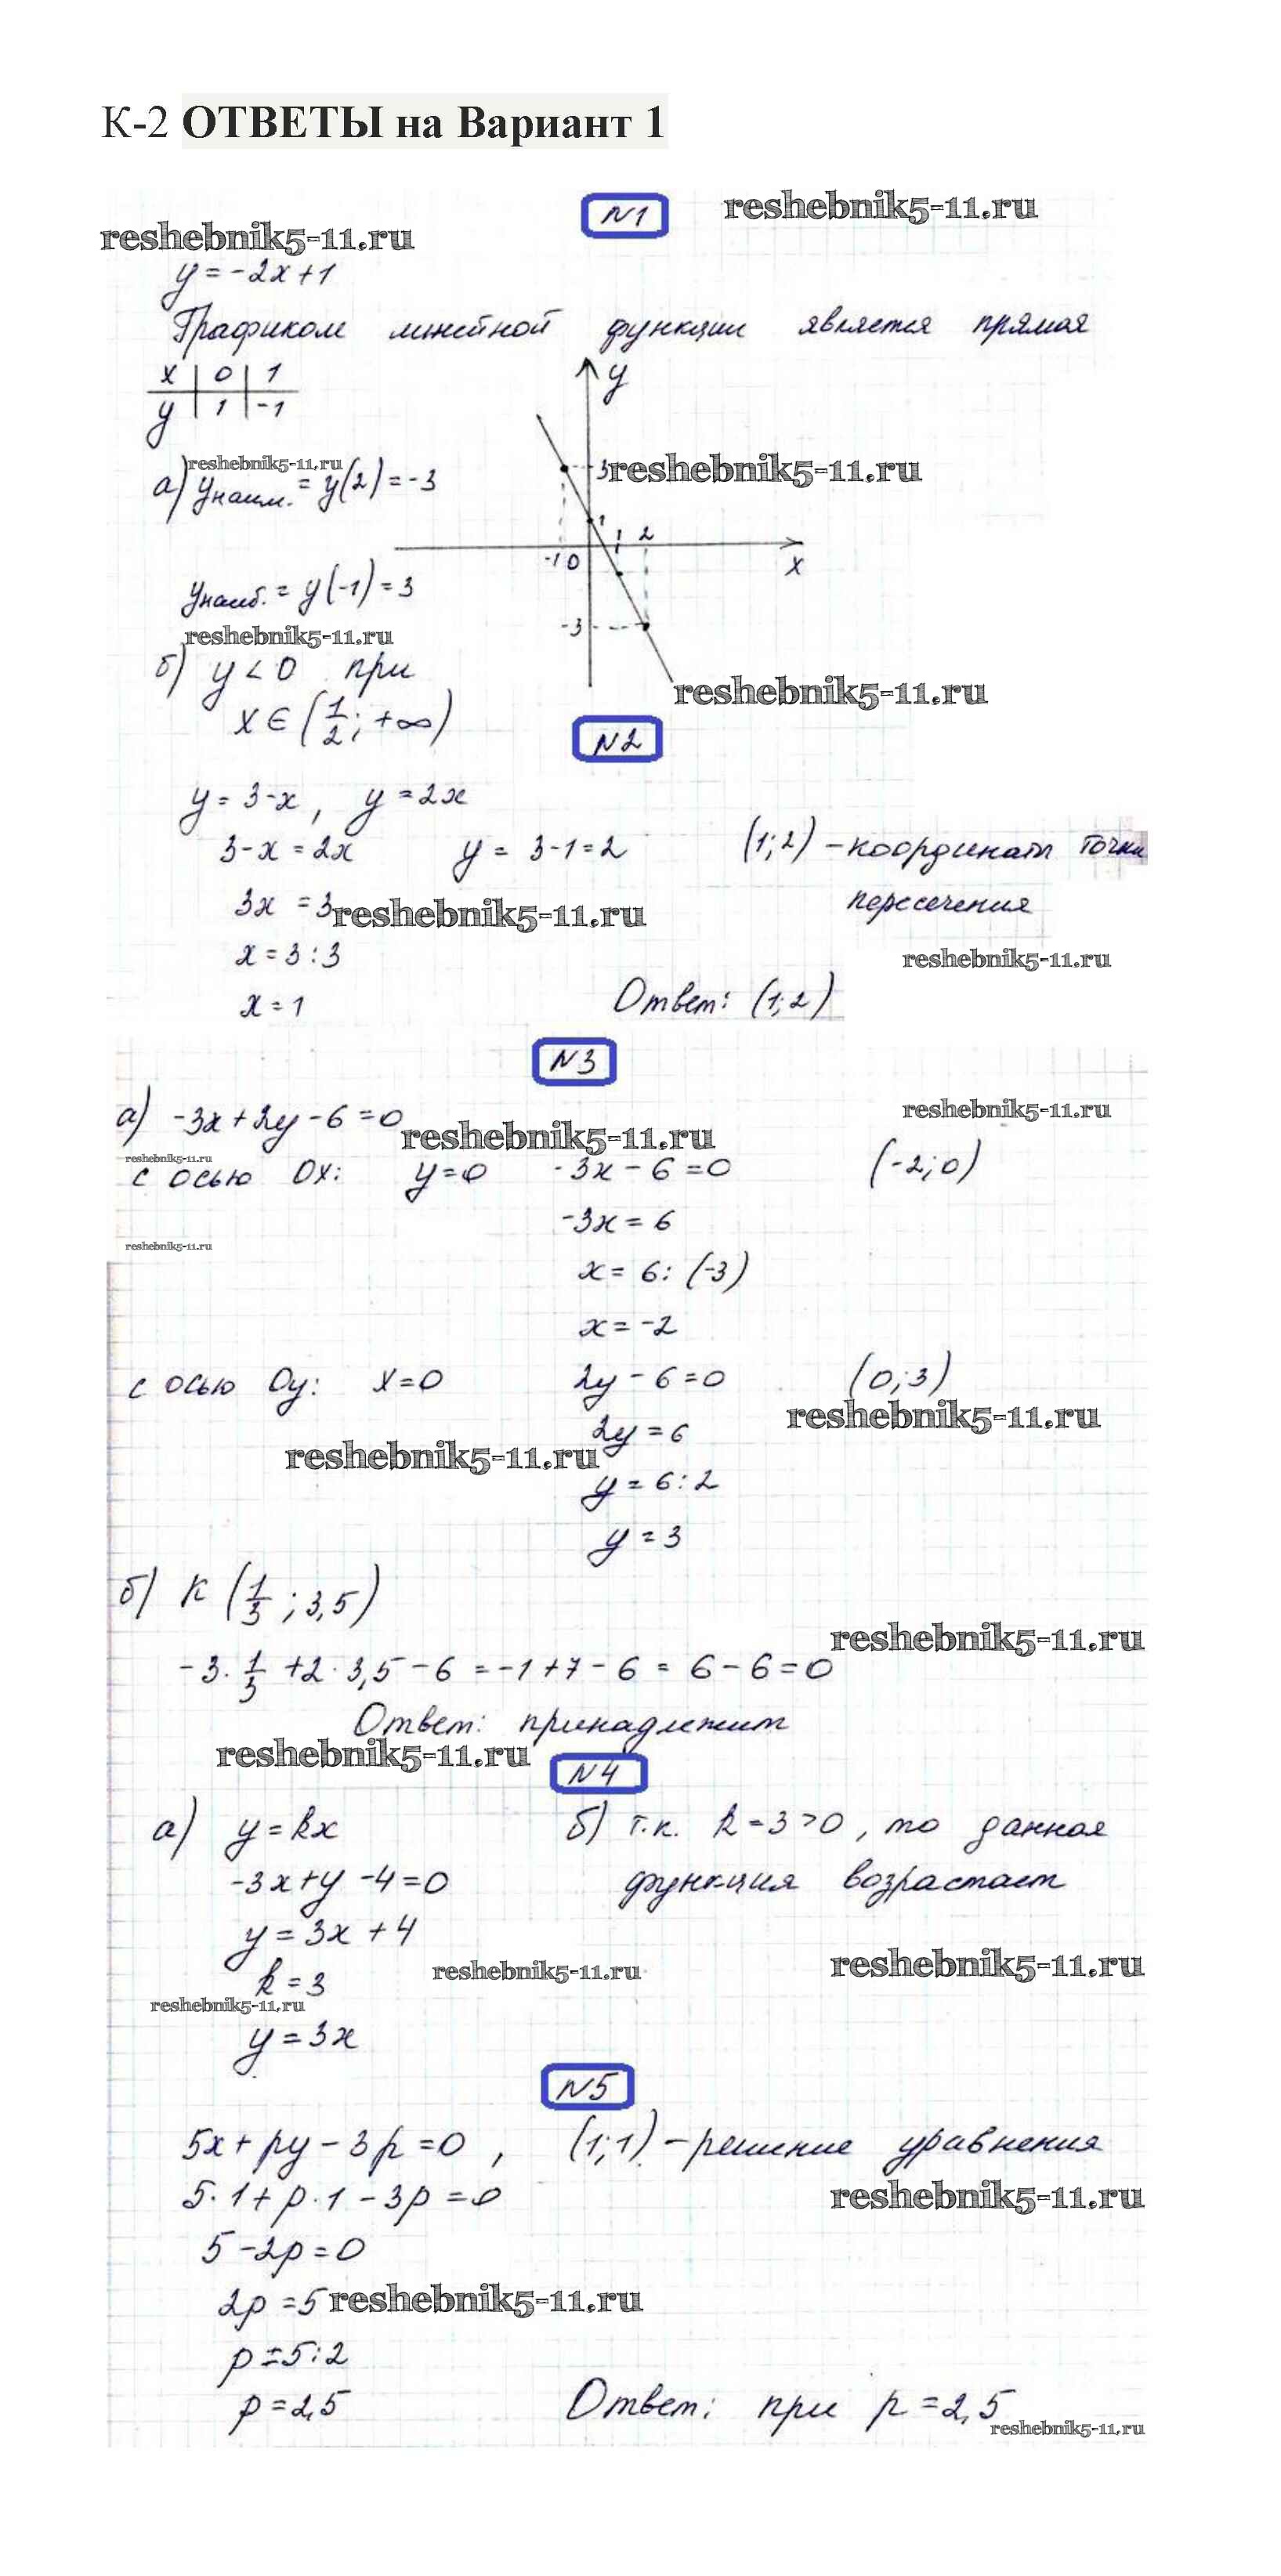 К-2 ОТВЕТЫ на Вариант 1
N1
reshebnik5-11.ru
reshebnik5-11.ru
y = -2x + 1
Графиком линейной функции является прямая
x | 0 | 1
y | 1 | -1
y
reshebnik5-11.ru
а) yнаим. = y(2) = -3
3
reshebnik5-11.ru
1
1 2
-1 0
x
yнаиб. = y(-1) = 3
-3
reshebnik5-11.ru
б) y < 0 при
reshebnik5-11.ru
x ∈ (1/2; +∞)
N2
y = 3-x, y = 2x
3-x = 2x y = 3-1 = 2 (1;2) - координаты точки
3x = 3 пересечения
reshebnik5-11.ru
x = 3:3
reshebnik5-11.ru
x = 1 Ответ: (1;2)
N3
а) -3x + 2y - 6 = 0
reshebnik5-11.ru
reshebnik5-11.ru
reshebnik5-11.ru
с осью Ox: y=0 -3x - 6 = 0 (-2;0)
-3x = 6
reshebnik5-11.ru
x = 6: (-3)
x = -2
с осью Oy: x=0 2y - 6 = 0 (0;3)
reshebnik5-11.ru
2y = 6
reshebnik5-11.ru
y = 6:2
y = 3
б) K (1/3; 3,5)
reshebnik5-11.ru
-3 · 1/3 + 2 · 3,5 - 6 = -1 + 7 - 6 = 6 - 6 = 0
Ответ: принадлежит
reshebnik5-11.ru
N4
а) y = kx б) т.к. k = 3 > 0, то данная
-3x + y - 4 = 0 функция возрастает
y = 3x + 4
reshebnik5-11.ru
reshebnik5-11.ru
k = 3
reshebnik5-11.ru
y = 3x
N5
5x + py - 3p = 0, (1;1) - решение уравнения
5·1 + p·1 - 3p = 0
reshebnik5-11.ru
5 - 2p = 0
2p = 5
reshebnik5-11.ru
p = 5:2
p = 2,5 Ответ: при p = 2,5
reshebnik5-11.ru